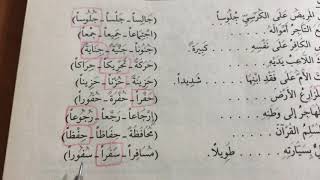 المريض على الكرسي جلوساً (جالساً - جلْساً - جلوساً)
التاجر أمواله (اجتماعاً - جميعاً - جمعاً)
الكافر على نفسه . . . . كبيرةً (جنوناً - جنيةً - جنايةً)
اللاعب يديه (حركةً - تحريكاً - حراكاً)
الأم على فقد ابنها . . . . شديداً (حزينةً - حُزناً - حزيناً)
الزارع الأرض (حفراً - حفرةً - حفوراً)
المهاجر إلى وطنه (إرجاعاً - رجعاً - رجوعاً)
المسلم القرآن (محافظةً - حفاظاً - حفظاً)
بسيارته . . . . طويلاً. (مسافراً - سفراً - سفوراً)